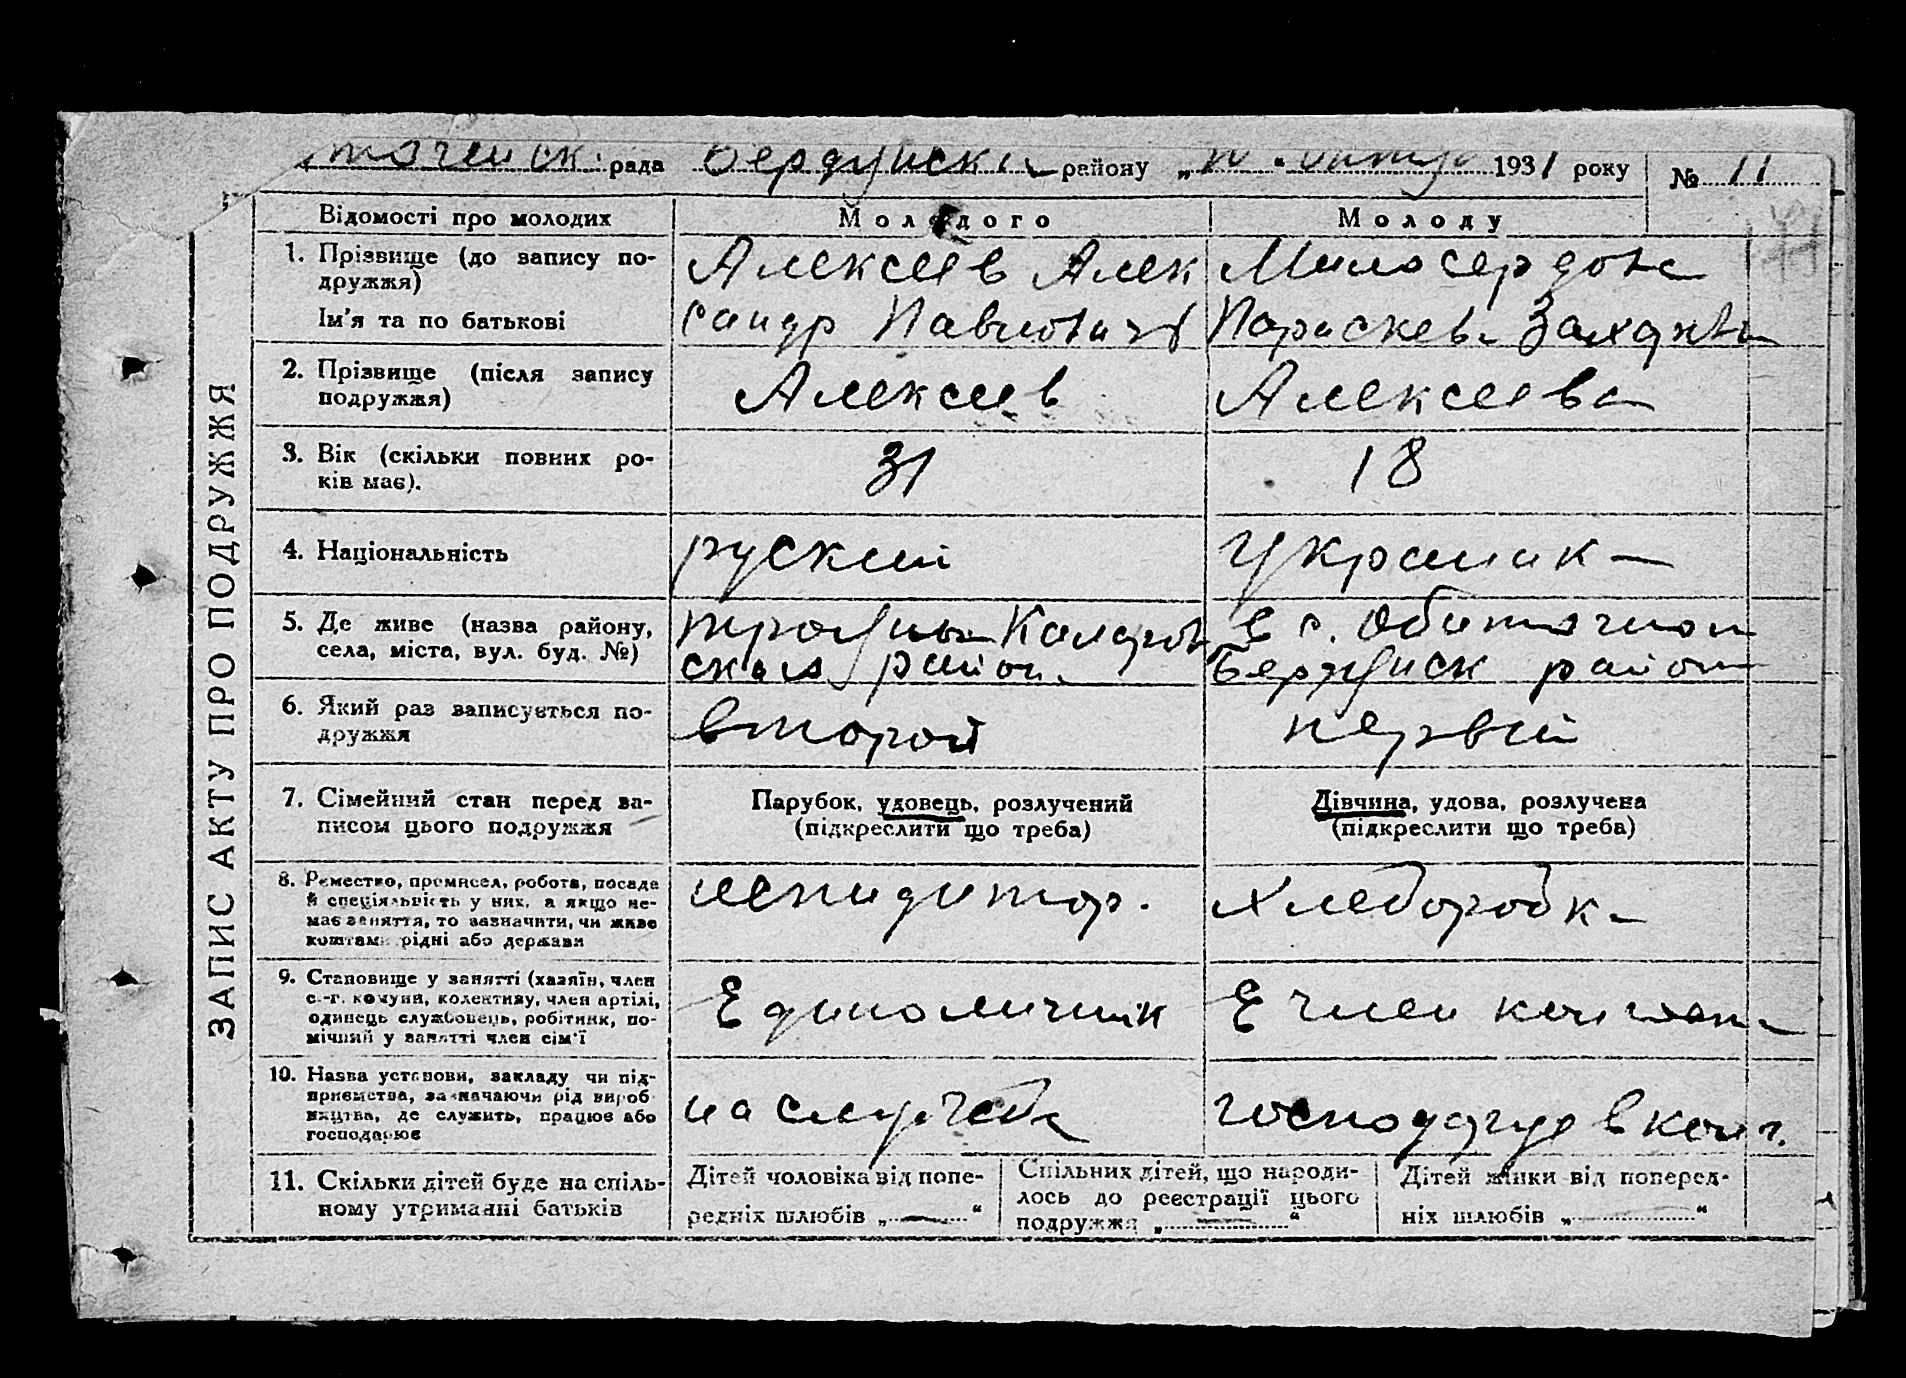 рада району 1931 року № 11
ЗАПИС АКТУ ПРО ПОДРУЖЖЯ
Відомості про молодих Молодого Молоду
1. Прізвище (до запису по-
дружжя)
Алексеев Алек
Милосердова
Ім'я та по батькові
сандр Павлович
2. Прізвище (після запису
подружжя)
Алексеев
Алексеева
3. Вік (скільки повних ро-
ків має).
31
18
4. Національність
руский
украинк
5. Де живе (назва району,
села, міста, вул. буд. №)
район
в с. Обиточном
район
6. Який раз записується по-
дружжя
второй
первий
7. Сімейний стан перед за-
писом цього подружжя
Парубок, удовець, розлучений
(підкреслити що треба)
Дівчина, удова, розлучена
(підкреслити що треба)
8. Ремество, промисел, робота, посада
й спеціяльність у них, а якщо не-
має заняття, то зазначити, чи живе
коштами рідні або держави
Хлеборобк
9. Становище у занятті (хазяїн, член
с.-г. комуни, колективу, член артілі,
одинець службовець, робітник, по-
мічний у занятті член сім'ї
Единоличник
Е член
10. Назва установи, закладу чи під-
приємства, зазначаючи рід вироб
ництва, де служить, працює або
господарює
на службе
11. Скільки дітей буде на спіль-
ному утриманні батьків
Дітей чоловіка від попе-
редніх шлюбів „—“
Спільних дітей, що народи-
лось до реєстрації цього
подружжя „—“
Дітей жінки від поперед-
ніх шлюбів „—“